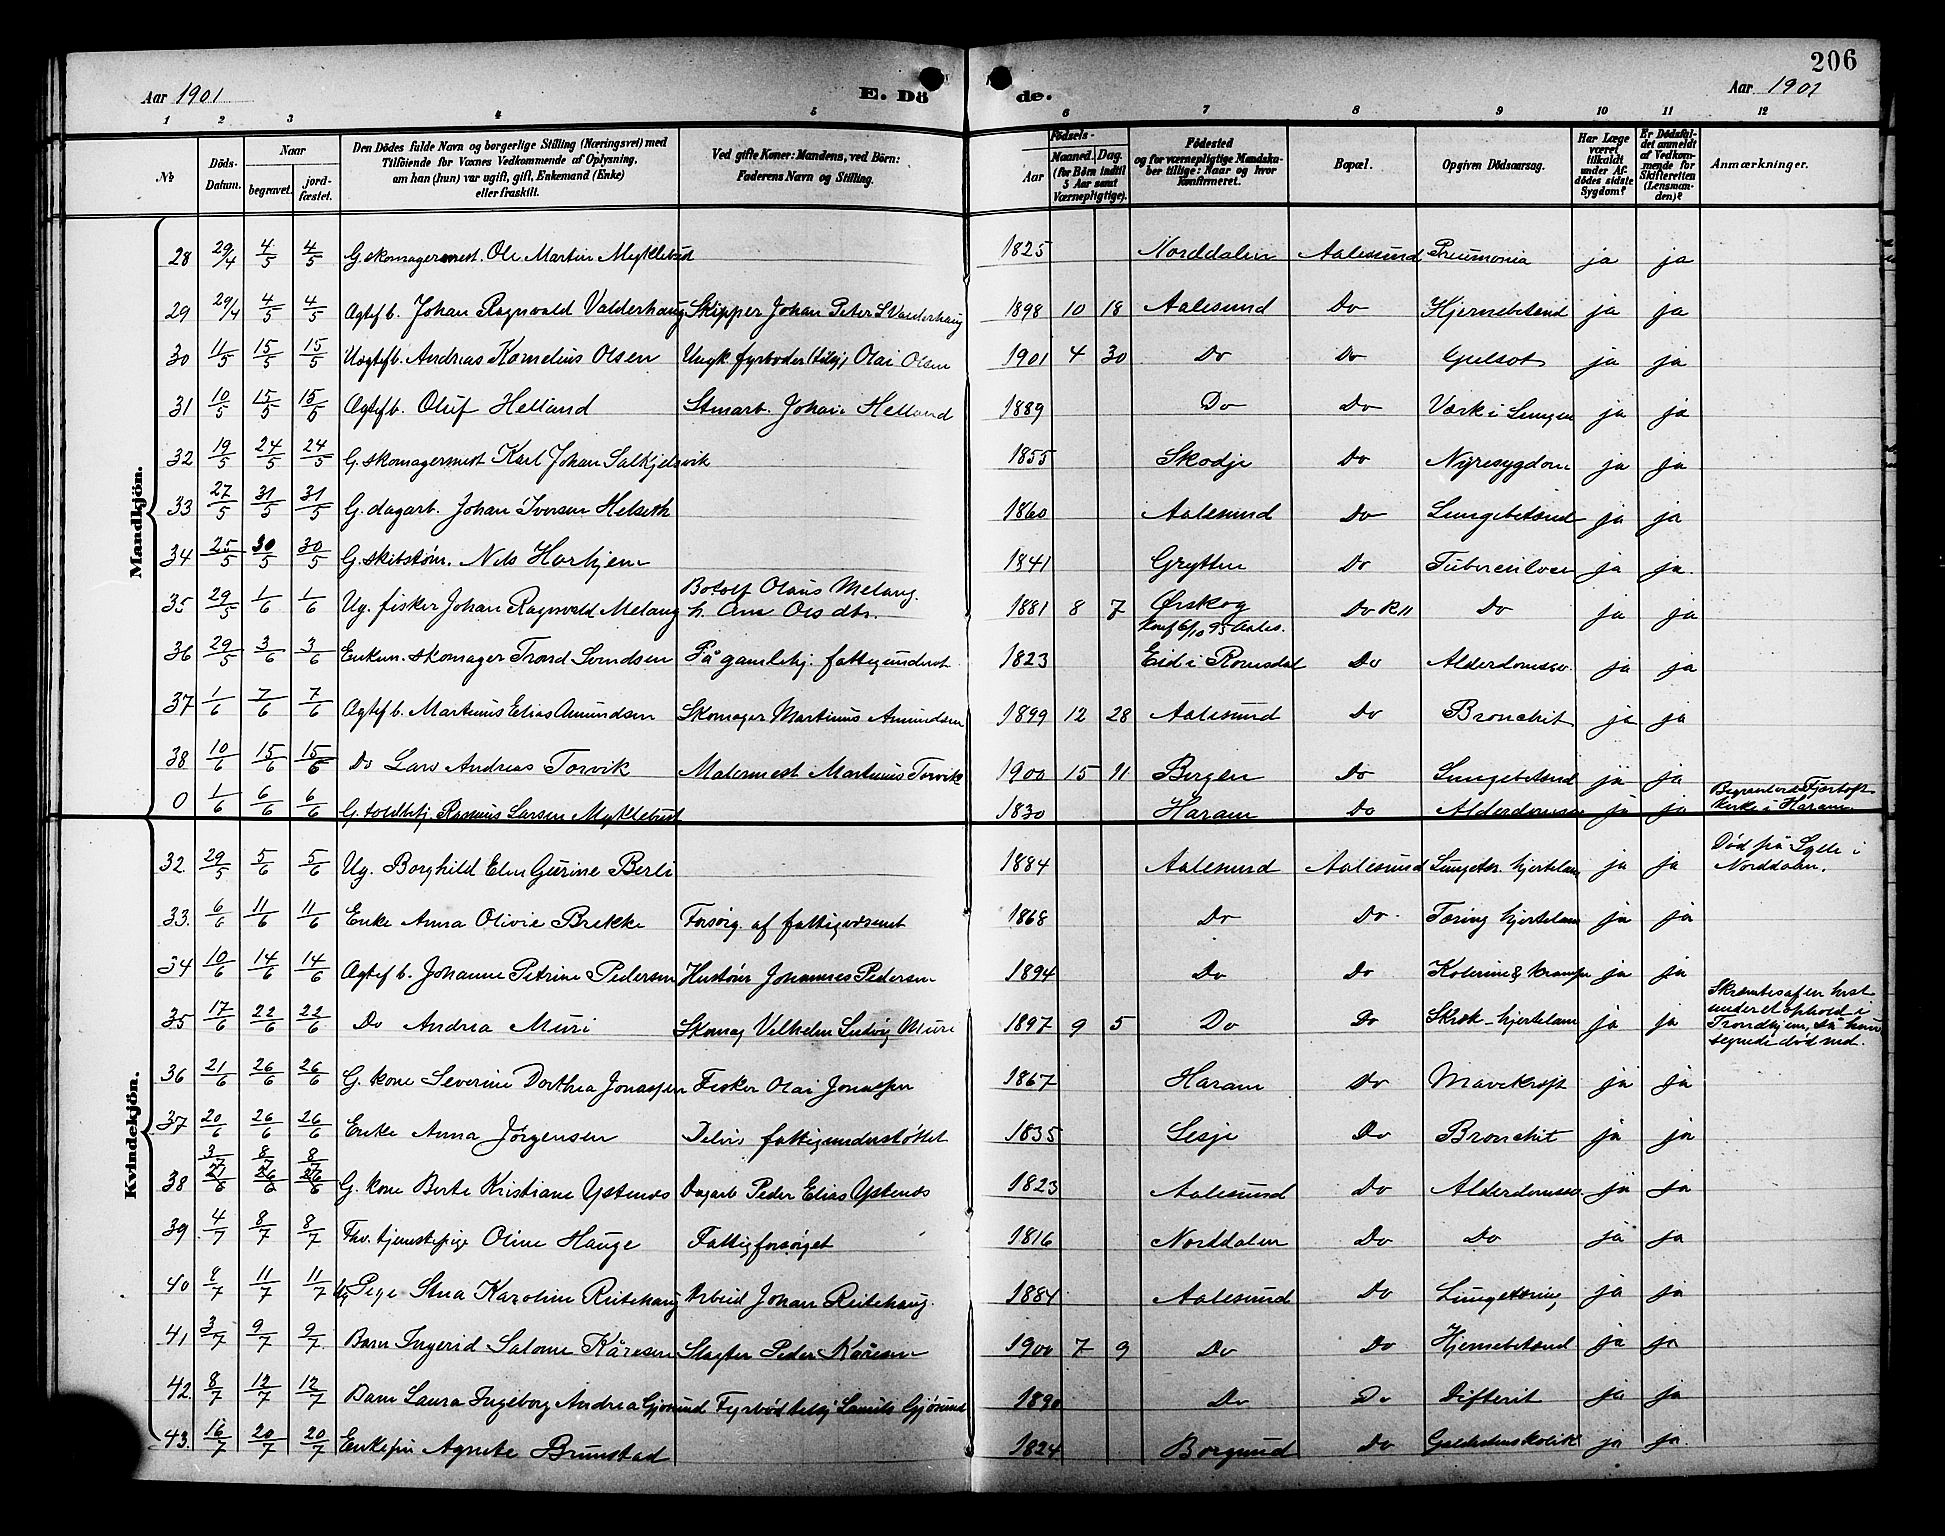 206
Aar 1901 E. Dö de. Aar 1901
1 2 3 4 5 6 7 8 9 10 11 12
№ Döds-Datum. Naar begravet. jord-fæstet. Den Dödes fulde Navn og borgerlige Stilling (Næringsvei) med Tilföiende for Voxnes Vedkommende af Oplysning, om han (hun) var ugift, gift, Enkemand (Enke) eller fraskilt. Ved gifte Koner: Mandens, ved Börn: Faderens Navn og Stilling. Födsels- Aar Maaned. Dag. (for Börn indtil 5 Aar samt Værnepligtige). Födested og for værnepligtige Mandskaber tillige: Naar og hvor konfirmeret. Bopæl. Opgiven Dödsaarsag. Har Læge været tilkaldt under Afdödes sidste Sygdom? Er Dödsfaldet anmeldt af Vedkommende for Skifteretten (Lensmanden)? Anmærkninger.
Mandkjön.
28 29/4 4/5 4/5 G. skomagermest. Ole Martin Myklebust 1825 Norddalen Aalesund Pneumonia ja ja
29 29/4 4/5 4/5 Ægtef b. Johan Ragnvald Valderhaug Skipper Johan Peter S Valderhaug 1898 10 18 Aalesund Do Hjernebetænd ja ja
30 11/5 15/5 15/5 Uægtefb. Andreas Kornelius Olsen Ungk. fyrbøder Olai Olsen 1901 4 30 Do Do Gulsot ja ja
31 10/5 15/5 15/5 Ægtefb. Oluf Helland Stenarb. Johan Helland 1889 Do Do Værk i Lungen ja ja
32 19/5 24/5 24/5 G. skomagermest Karl Johan Salkjelsvik 1855 Skodje Do Nyresygdom ja ja
33 27/5 31/5 31/5 G. dagarb. Johan Iversen Helseth 1860 Aalesund Do Lungebetænd ja ja
34 25/5 30/5 30/5 G. skibstøm. Nils Horhjem 1841 Grytten Do Tuberculose ja ja
35 29/5 1/6 1/6 Ug. fisker Johan Ragnvald Melang Botolf Olaus Melang. h. Ane Olsdtr. 1881 8 7 Ørskog Konf 6/10 95 Aales. Do R 11 Do ja ja
36 29/5 3/6 3/6 Enkem. skomager Trond Svendsen På gamlehj. fattigunderst. 1823 Eid i Romsdal Do Alderdomssv. ja ja
37 1/6 7/6 7/6 Ægtef b. Martinus Elias Amundsen Skomager Martinus Amundsen 1899 12 28 Aalesund Do Bronchit ja ja
38 10/6 15/6 15/6 Do Lars Andreas Torvik Malermest Martinus Torvik 1900 15 11 Bergen Do Lungebetænd ja ja
0 1/6 6/6 6/6 G. toldbetj. Rasmus Larsen Myklebust 1830 Haram Do Alderdomssv ja ja Begravet ved Fjørtoft kirke i Haram
Kvindekjön.
32 29/5 5/6 5/6 Ug. Borghild Elen Gurine Berli 1884 Aalesund Aalesund Lungetær. hjertelam ja ja Død på Sylte i Norddalen.
33. 6/6 11/6 11/6 Enke Anna Olivie Brekke Forsørg. af fattigvæsenet 1868 Do Do. Tæring hjertelam ja ja
34 10/6 14/6 14/6 Ægtef b. Johanne Petrine Pedersen Hustøm Johannes Pedersen 1894 Do Do Kolerine & krampe ja ja
35 17/6 22/6 22/6 Do Andrea Muri Skomag Vilhelm Ludvig Muri 1897 9 5 Do Do Skræk - hjertelam ja ja Skræmtes af en hest under et ophold i Trondhjem, så hun segnede død ned.
36 21/6 26/6 26/6 G. kone Severine Dorthea Jonassen Fisker Olai Jonassen 1867 Haram Do Mavekræft ja ja
37 20/6 26/6 26/6 Enke Anna Jørgensen Delvis fattigunderstøttet 1835 Lesje Do Bronchit ja ja
38 3/7 8/7 8/7 21/6 26/6 26/6 G. kone Berte Kristiane Ystenæs Dagarb Peder Elias Ystenæs 1823 Aalesund Do Alderdomssv ja ja
39 4/7 8/7 8/7 Fhv. tjenestepige Oline Hauge Fattigforsørget 1816 Norddalen Do Do ja ja
40 8/7 11/7 11/7 Ug Pige Stina Karoline Reitehaug Arbeid Johan Reitehaug. 1884 Aalesund Do Lungetæring ja ja
41 3/7 9/7 9/7 Barn Ingerid Salome Kåresen Slagter Peder Kåresen 1900 7 9 Do Do Hjernebetænd ja ja
42. 8/7 12/7 12/7 Barn Laura Ingeborg Andrea Gjøsund Fyrbød Gjøsund 1890 Do Do Difterit ja ja
43. 16/7 20/7 20/7 Enkefru Agnete Brunstad 1824 Borgund Do Galdestenskolik ja ja.